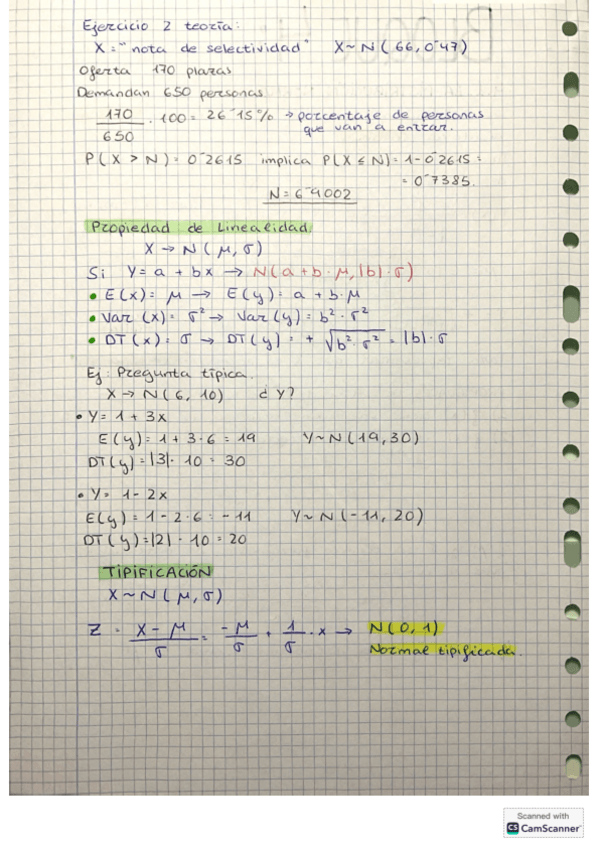 Ejercicio 2 teoría:
X = "nota de selectividad" X ~ N(66, 0'47)
Oferta 170 plazas
Demandan 650 personas
170/650 · 100 = 26'15% → porcentaje de personas
que van a entrar.
P(X > N) = 0'2615 implica P(X ≤ N) = 1 - 0'2615 =
= 0'7385.
N = 6'9002
Propiedad de Linealidad
X → N(μ, σ)
Si Y = a + bx → N(a + b·μ, |b|·σ)
• E(x) = μ → E(y) = a + b·μ
• Var(x) = σ² → Var(y) = b²·σ²
• DT(x) = σ → DT(y) = + √b²·σ² = |b|·σ
Ej: Pregunta típica.
X → N(6, 10) ¿Y?
• Y = 1 + 3x
E(y) = 1 + 3·6 = 19 Y ~ N(19, 30)
DT(y) = |3|· 10 = 30
• Y = 1 - 2x
E(y) = 1 - 2·6 = -11 Y ~ N(-11, 20)
DT(y) = |2| · 10 = 20
TIPIFICACIÓN
X ~ N(μ, σ)
Z = X - μ/σ = -μ/σ + 1/σ · x → N(0, 1)
Normal tipificada.
Scanned with
CS CamScanner